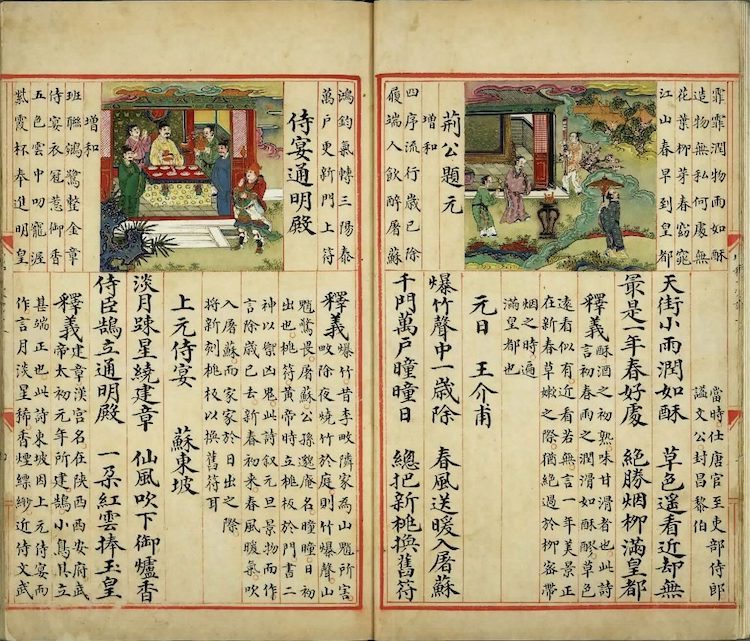 霏霏潤物雨如酥
造物無私何處無
花葉柳芽春窈窕
江山春早到皇都
荊公題元
增和
四序流行歲已除
履端人飲醉屠蘇
當時仕唐官至吏部侍郎
謚文公封昌黎伯
天街小雨潤如酥 草色遙看近却無
最是一年春好處 絶勝烟柳滿皇都
釋義 酥酒之初熟味甘滑者也此詩
言初春雨之潤滑如酥醪草色
遠看似有近看若無言一年美景正
在新春草嫩之際猶絶過於柳容帶
烟之時遍
滿皇都也
元日 王介甫
爆竹聲中一歲除 春風送暖入屠蘇
千門萬戶曈曈日 總把新桃換舊符
鴻鈞氣轉三陽泰
萬戶更新門上符
侍宴通明殿
增和
班聯鴻鷺整金章
侍宴衣冠惹御香
五色雲中叨寵渥
紫霞杯奉進明皇
釋義 爆竹昔李畋隣家為山魈所害
畋除夜燒竹於庭則竹爆聲山
魈驚畏屠蘇公孫邈庵名曈曈日初
出也桃符黄帝時立桃板於門書二
神以禦凶鬼此詩叙元旦景物而作
言除歲已去新春初来春風暖氣吹
入屠蘇而家家於日出之際
將新刻桃板以換舊符耳
上元侍宴 蘇東坡
淡月踈星繞建章 仙風吹下御爐香
侍臣鵠立通明殿 一朶紅雲捧玉皇
釋義 建章漢宮名在陕西西安府武
帝太初元年所建鵠小鳥其立
甚端正也此詩東坡因上元侍宴而
作言月淡星稀香煙縹緲近侍文武